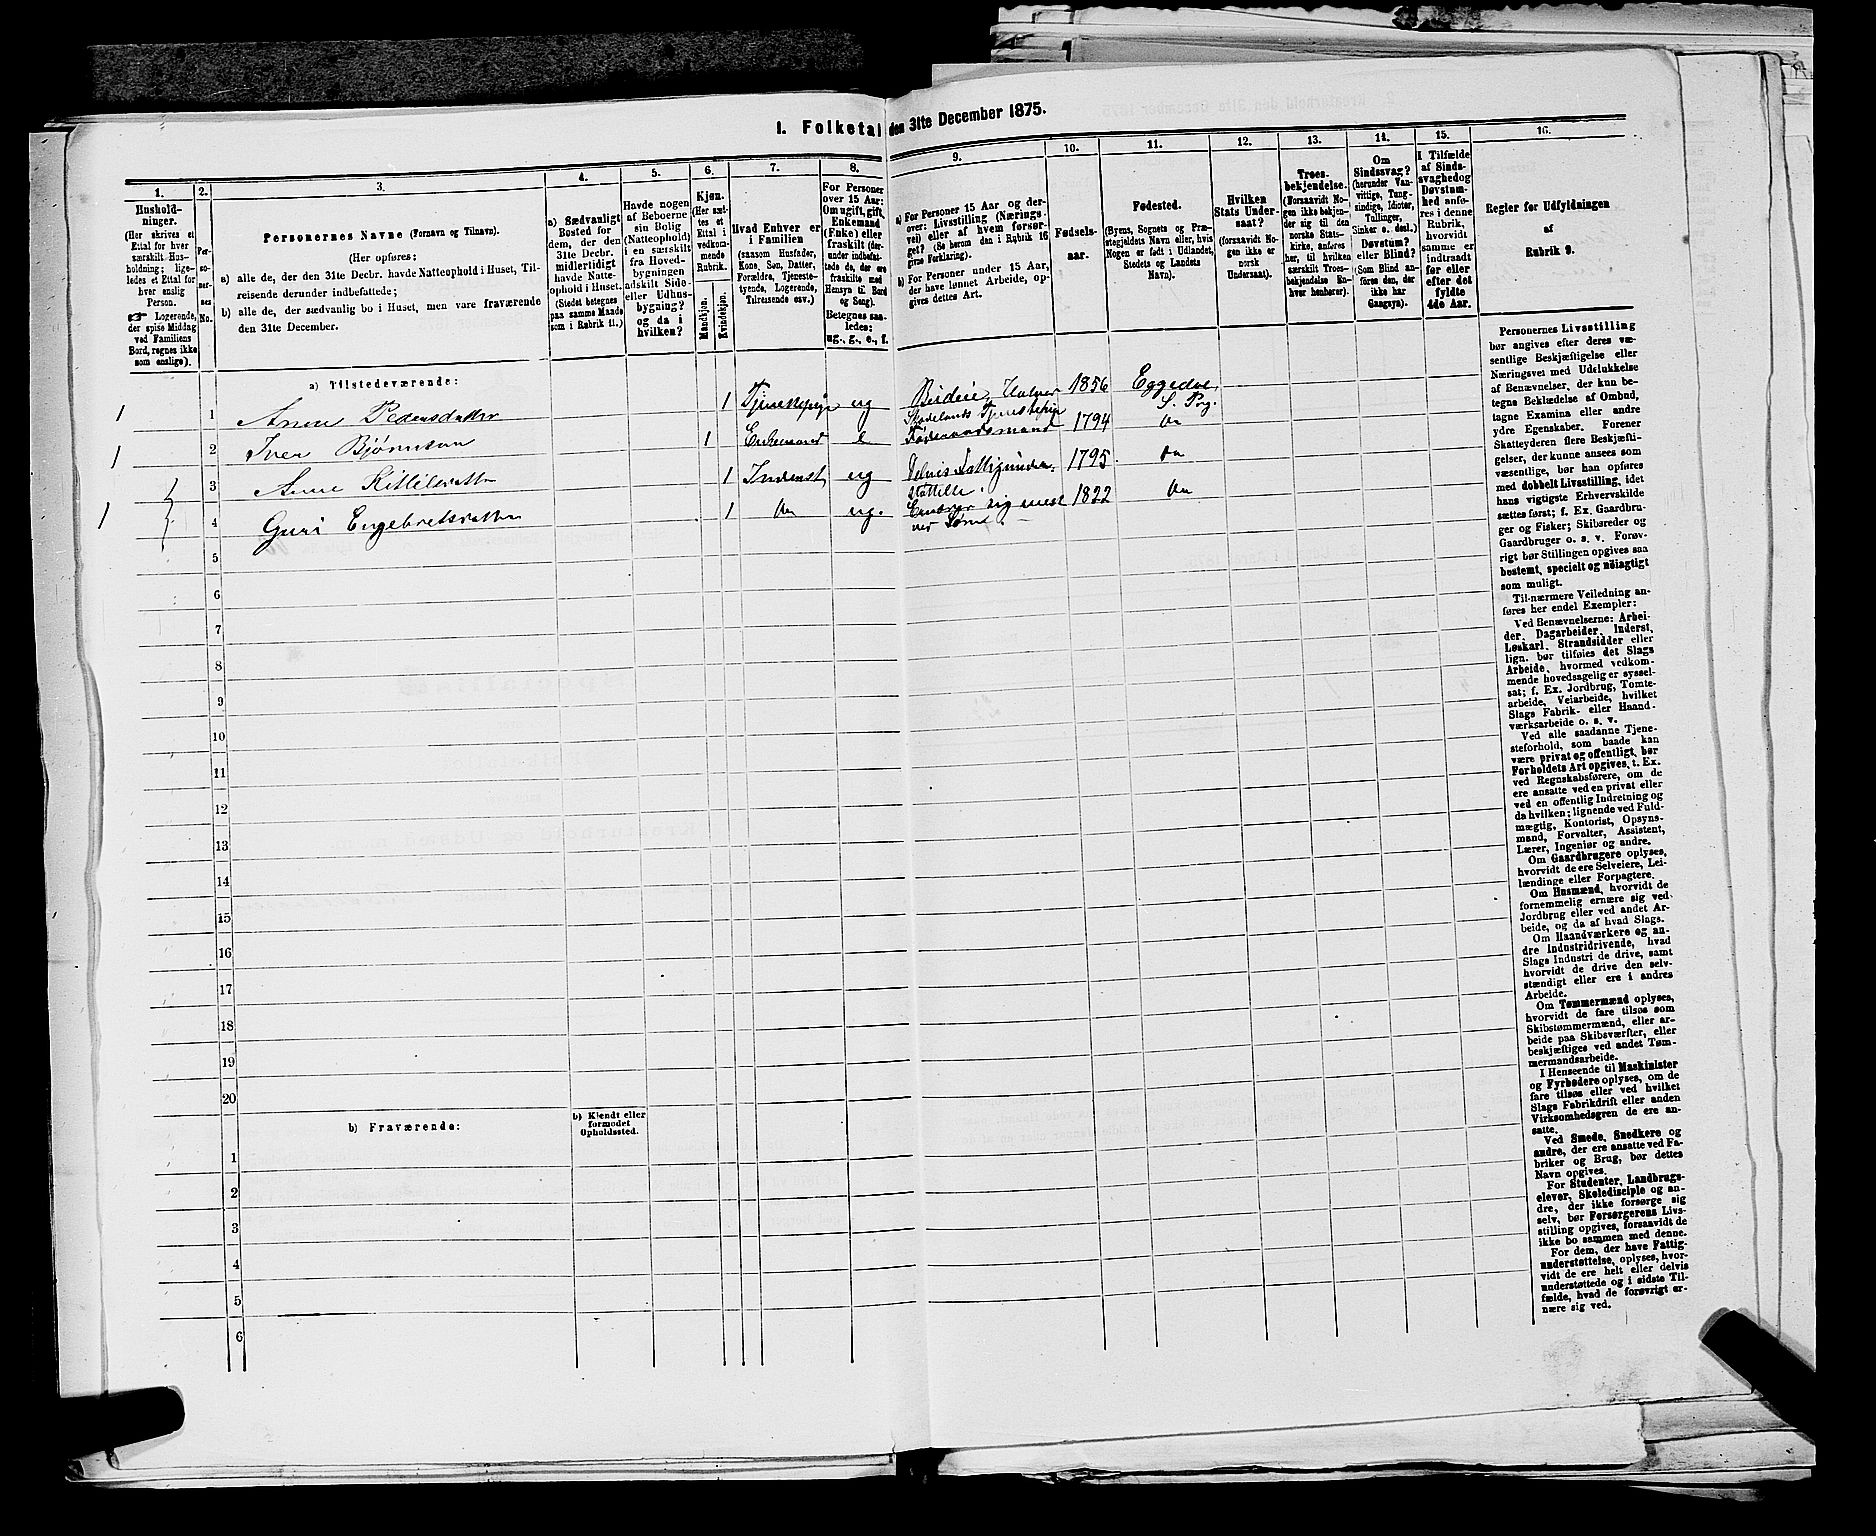 I. Folketal den 31te December 1875.
1. 2. 3. 4. 5. 6. 7. 8. 9. 10. 11. 12. 13. 14. 15. 16.
Hushold-
ninger.
(Her skrives et
Ettal for hver
særskilt Hus-
holdning; lige-
ledes et Ettal for
hver enslig
Person.
☛ Logerende,
der spise Middag
ved Familiens
Bord, regnes ikke
som enslige).
Per-
so-
ner-
nes
No.
Personernes Navne (Fornavn og Tilnavn).
(Her opføres:
a) alle de, der den 31te Decbr. havde Natteophold i Huset, Til-
reisende derunder indbefattede;
b) alle de, der sædvanlig bo i Huset, men vare fraværende
den 31te December.
a) Sædvanligt
Bosted for
dem, der den
31te Decbr.
midlertidigt
havde Natte-
ophold i Huset.
(Stedet betegnes
paa samme Maade
som i Rubrik 11.)
Havde nogen
af Beboerne
sin Bolig
(Natteophold)
i en særskilt
fra Hoved-
bygningen
adskilt Side-
eller Udhus-
bygning?
og da i
hvilken?
Kjøn.
(Her sæt-
tes et
Ettal i
vedkom-
mende
Rubrik.
Mandkjøn.
Kvindekjøn.
Hvad Enhver er
i Familien
(saasom Husfader,
Kone, Søn, Datter,
Forældre, Tjeneste-
tyende, Logerende,
Tilreisende osv.)
For Personer
over 15 Aar:
Om ugift, gift,
Enkemand
(Enke) eller
fraskilt (der-
under indbefat-
tede de, der ere
fraskilte med
Hensyn til Bord
og Seng).
Betegnes saa-
ledes:
ug., g., e., f.
a) For Personer 15 Aar og der-
over: Livsstilling (Nærings-
vei) eller af hvem forsør-
get? (Se herom den i Rubrik 16
givne Forklaring).
b) For Personer under 15 Aar,
der have lønnet Arbeide, op-
gives dettes Art.
Fødsels-
aar.
Fødested.
(Byens, Sognets og Præ-
stegjeldets Navn eller, hvis
Nogen er født i Udlandet,
Stedets og Landets
Navn).
Hvilken
Stats Under-
saat?
(forsaavidt No-
gen ikke er
norsk
Undersaat).
Troes-
bekjendelse.
(Forsaavidt No-
gen ikke bekjen-
der sig til den
norske Stats-
kirke, anføres
her, til hvilken
særskilt Troes-
bekjendelse En-
hver henhører).
Om
Sindssvag?
(herunder Van-
vittige, Tung-
sindige, Idioter,
Tullinger,
Sinker o. desl.)
Døvstum?
eller Blind?
(Som Blind an-
føres den, der
ikke har
Gangsyn).
I Tilfælde
af Sinds-
svaghed og
Døvstum-
hed anfø-
res i denne
Rubrik,
hvorvidt
samme er
indtraadt
før eller
efter det
fyldte
4de Aar.
Regler for Udfyldningen
af
Rubrik 9.
a) Tilstedeværende:
1 1 Anne Pedersdatter 1 Tjenestepige ug Budeie, 1856 Eggedal,
S. Prg.
1 2 Iver Bjørnson 1 Enkemand e Føderaadsmand 1794 Do
3 Anne Kittilsdatter 1 Inderst ug 1795. Do
1 4 Guri Engebretsdatter 1 Do ug. Ernærer sig mest 1822 Do
5
6
7
8
9
10
11
12
13
14
15
16
17
18
19
20
b) Fraværende:
b) Kjendt eller
formodet
Opholdssted.
1
2
3
4
5
6
Personernes Livsstilling
bør angives efter deres væ-
sentlige Beskjæftigelse eller
Næringsvei med Udelukkelse
af Benævnelser, der kun be-
tegne Beklædelse af Ombud,
tagne Examina eller andre
ydre Egenskaber. Forener
Skatteyderen flere Beskjæfti-
gelser, der kunne ansees som
væsentlige, bør han opføres
med dobbelt Livsstilling, idet
hans vigtigste Erhvervskilde
sættes først; f. Ex. Gaardbru-
ger og Fisker; Skibsreder og
Gaardbruger o. s. v. Forøv-
rigt bør Stillingen opgives saa
bestemt, specielt og nøiagtigt
som muligt.
Til nærmere Veiledning an-
føres her endel Exempler:
Ved Benævnelserne: Arbei-
der, Dagarbeider, Inderst,
Løskarl, Strandsidder eller
lign. bør tilføies det Slags
Arbeide, hvormed vedkom-
mende hovedsagelig er syssel-
sat; f. Ex. Jordbrug, Tomte-
arbeide, Veiarbeide, hvilket
Slags Fabrik- eller Haand-
værksarbeide o. s. v.
Ved alle saadanne Tjene-
steforhold, som baade kan
være privat og offentligt, bør
Forholdets Art opgives, t. Ex.
ved Regnskabsførere, om de
ere ansatte ved en privat eller
ved en offentlig Indretning og
da hvilken; lignende ved Fuld-
mægtig, Kontorist, Opsyns-
mand, Forvalter, Assistent,
Lærer, Ingeniør og andre.
Om Gaardbrugere oplyses,
hvorvidt de ere Selveiere, Lei-
lændinge eller Forpagtere.
Om Husmænd, hvorvidt de
fornemmelig ernære sig ved
Jordbrug eller ved andet Ar-
beide, og da af hvad Slags.
Om Haandværkere og an-
dre Industridrivende, hvad
Slags Industri de drive, samt
hvorvidt de drive den selv-
stændigt eller ere i andres
Arbeide.
Om Tømmermænd oplyses,
hvorvidt de fare tilsøs som
Skibstømmermænd, eller ar-
beide paa Skibsværfter, eller
beskjæftiges ved andet Tøm-
mermandsarbeide.
I Henseende til Maskinister
og Fyrbødere oplyses, om de
fare tilsøs eller ved hvilket
Slags Fabrikdrift eller anden
Virksomhedsgren de ere an-
satte.
Ved Smede, Snedkere og
andre, der ere ansatte ved Fa-
briker og Brug, bør dettes
Navn opgives.
For Studenter, Landbrugs-
elever, Skoledisciple og an-
dre, der ikke forsørge sig
selv, bør Forsørgerens Livs-
stilling opgives, forsaavidt de
ikke bo sammen med denne.
For dem, der have Fattig-
understøttelse, oplyses, hvor-
vidt de ere helt eller delvis
understøttede og i sidste Til-
fælde, hvad de forøvrigt er-
nære sig ved.